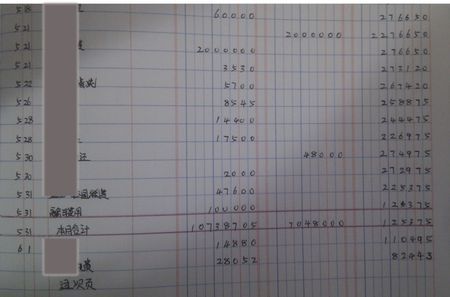 5 18 60000 276650
5 21 2000000 2276650
5 21 2000000 276650
5 21 3530 273120
5 22 5700 267420
5 26 8545 258875
5 28 14400 244475
5 28 17500 226975
5 30 还 48000 274975
5 30 2000 272975
5 31 47600 225375
5 31 费用 100000 125375
5 31 本月合计 10738705 7048000 125375
6 1 14880 110495
费 28052 82443
过次页